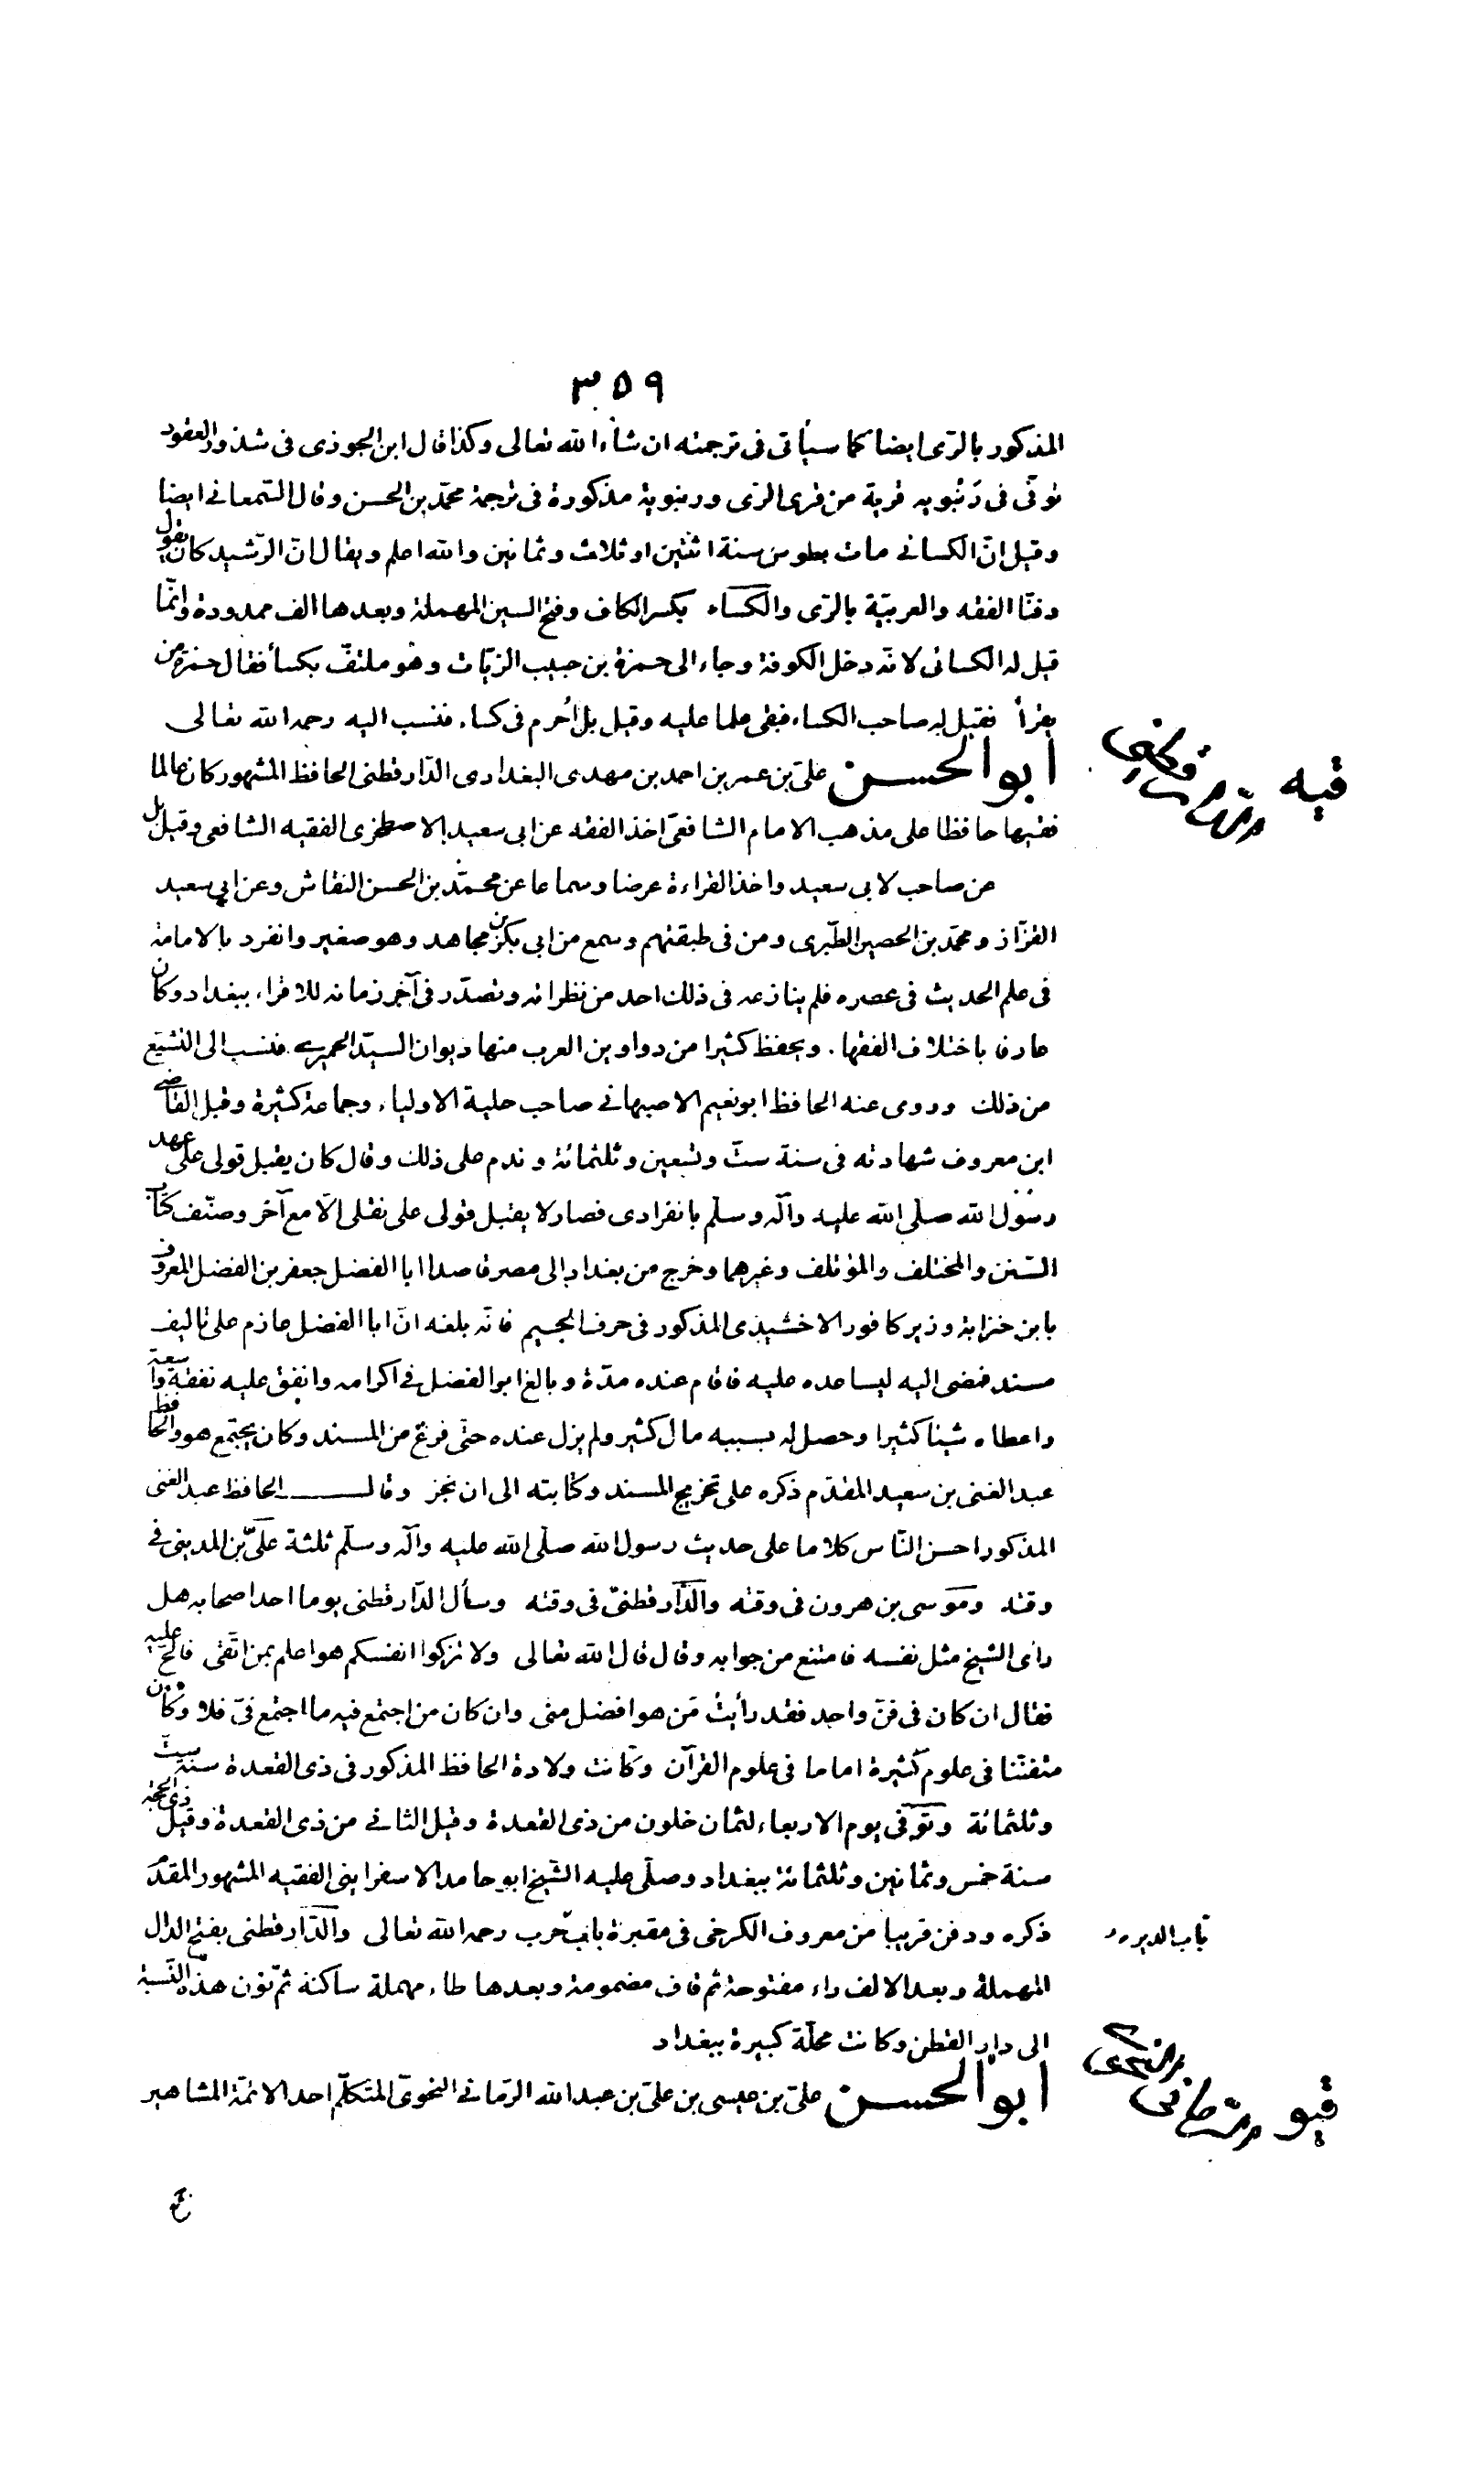 ٣٥٩
المذكور بالرّى ايضا كما سيأتى فى ترجمته ان شاء الله تعالى وكذا قال ابن الجوذى فى شذور العقود
توفّى فى رَنْبويه قرية من قرى الرّى ورنبوية مذكورة فى ترجمة محمّد بن الحسن وقال السّمعانى ايضا
وقيل انّ الكسائى مات بطوس سنة اثنتين او ثلاث وثمانين والله اعلم ويقال انّ الرّشيد كان يقول
دفنّا الفقه والعربيّة بالرّى والكساء بكسر الكاف وفتح السين المهملة وبعدها الف ممدودة وانّما
قيل له الكسائى لانّه دخل الكوفة وجاء الى حمزة بن حبيب الزيّات وهو ملتفّ بكسأ فقال حمزة من
يقرأ فقيل له صاحب الكساء فبقى علما عليه وقيل بل اُحرم فى كساء فنسب اليه رحمه الله تعالى
ابو الحسن علىّ بن عمر بن احمد بن مهدى البغدادى الدّارقطنى الحافظ المشهور كان عالما
قيه
فقيها حافظا على مذهب الامام الشافعىّ اخذ الفقه عن ابى سعيد الاصطخرى الفقيه الشافعى وقيل بل
عن صاحب لابى سعيد واخذ القراءة عرضا وسماعا عن محمّد بن الحسن النقاش وعن ابى سعيد
القزّاز ومحمّد بن الحصين الطّبرى ومن فى طبقتهم وسمع من ابى بكر بن مجاهد وهو صغير وانفرد بالامامة
فى علم الحديث فى عصره فلم ينازعه فى ذلك احد من نظرائه وتصدّر فى آخر زمانه للاقراء ببغداد وكان
عارفا باختلاف الفقهاء ويحفظ كثيرا من دواوين العرب منها ديوان السيّد الحميرى فنسب الى التشيّع
من ذلك وروى عنه الحافظ ابو نعيم الاصبهانى صاحب حلية الاولياء وجماعة كثيرة وقبل القاضى
ابن معروف شهادته فى سنة ستّ وتسعين وثلثمائة وندم على ذلك وقال كان يقبل قولى على عهد
رسول الله صلّى الله عليه وآله وسلّم بانفرادى فصار لا يقبل قولى على نقلى الّا مع آخر وصنّف كتاب
السّنن والمختلف والمؤتلف وغيرهما وخرج من بغداد الى مصر قاصدا ابا الفضل جعفر بن الفضل المعروف
بابن خنزابة وزير كافور الاخشيذى المذكور فى حرف الجيم فانّه بلغه انّ ابا الفضل عازم على تاليف
مسند فمضى اليه ليساعده عليه فاقام عنده مدّة وبالغ ابو الفضل فى اكرامه وانفق عليه نفقة واسعة
واعطاه شيئا كثيرا وحصل له بسببه مال كثير ولم يزل عنده حتّى فرغ من المسند وكان يجتمع هو والحافظ
عبد الغنى بن سعيد المقدّم ذكره على تخريج المسند وكتابته الى ان نجز وقال الحافظ عبد الغنى
المذكور احسن النّاس كلاما على حديث رسول الله صلّى الله عليه وآله وسلّم ثلثة علىّ بن المدينى فى
وقته وموسى بن هرون فى وقته والدّارقطنىّ فى وقته وسأل الدّارقطنى يوما احد اصحابه هل
رأى الشيخ مثل نفسه فامتنع من جوابه وقال قال الله تعالى ولا تزكوا انفسكم هو اعلم بمن اتّقى فالحّ عليه
فقال ان كان فى فنّ واحد فقد رأيتُ مَن هو افضل منى وان كان من اجتمع فيه ما اجتمع فىّ فلا وكان
متفنّنا فى علوم كثيرة اماما فى علوم القرآن وكانت ولادة الحافظ المذكور فى ذى القعدة سنة ستّ
وثلثمائة وتوفّى يوم الاربعاء لثمان خلون من ذى القعدة وقيل الثانى من ذى القعدة وقيل ذى الحجّة
سنة خمس وثمانين وثلثمائة ببغداد وصلّى عليه الشّيخ ابو حامد الاسفراينى الفقيه المشهور المقدّم
ذكره ودفن قريبا من معروف الكرخى فى مقبرة باب حرب رحمه الله تعالى والدّارقطنى بفتح الدال
باب الدير
المهملة وبعد الالف راء مفتوحة ثم قاف مضمومة وبعدها طاء مهملة ساكنة ثمّ نون هذه النّسبة
الى دار القطن وكانت محلّة كبيرة ببغداد
ابو الحسن علىّ بن عيسى بن علىّ بن عبد الله الرّمانى النحوىّ المتكلّم احد الائمّة المشاهير
قيو